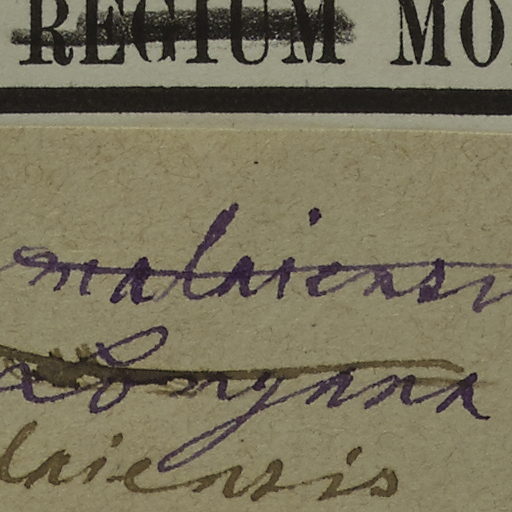 REGIUM MO
malaiensi
Longana
laiensis